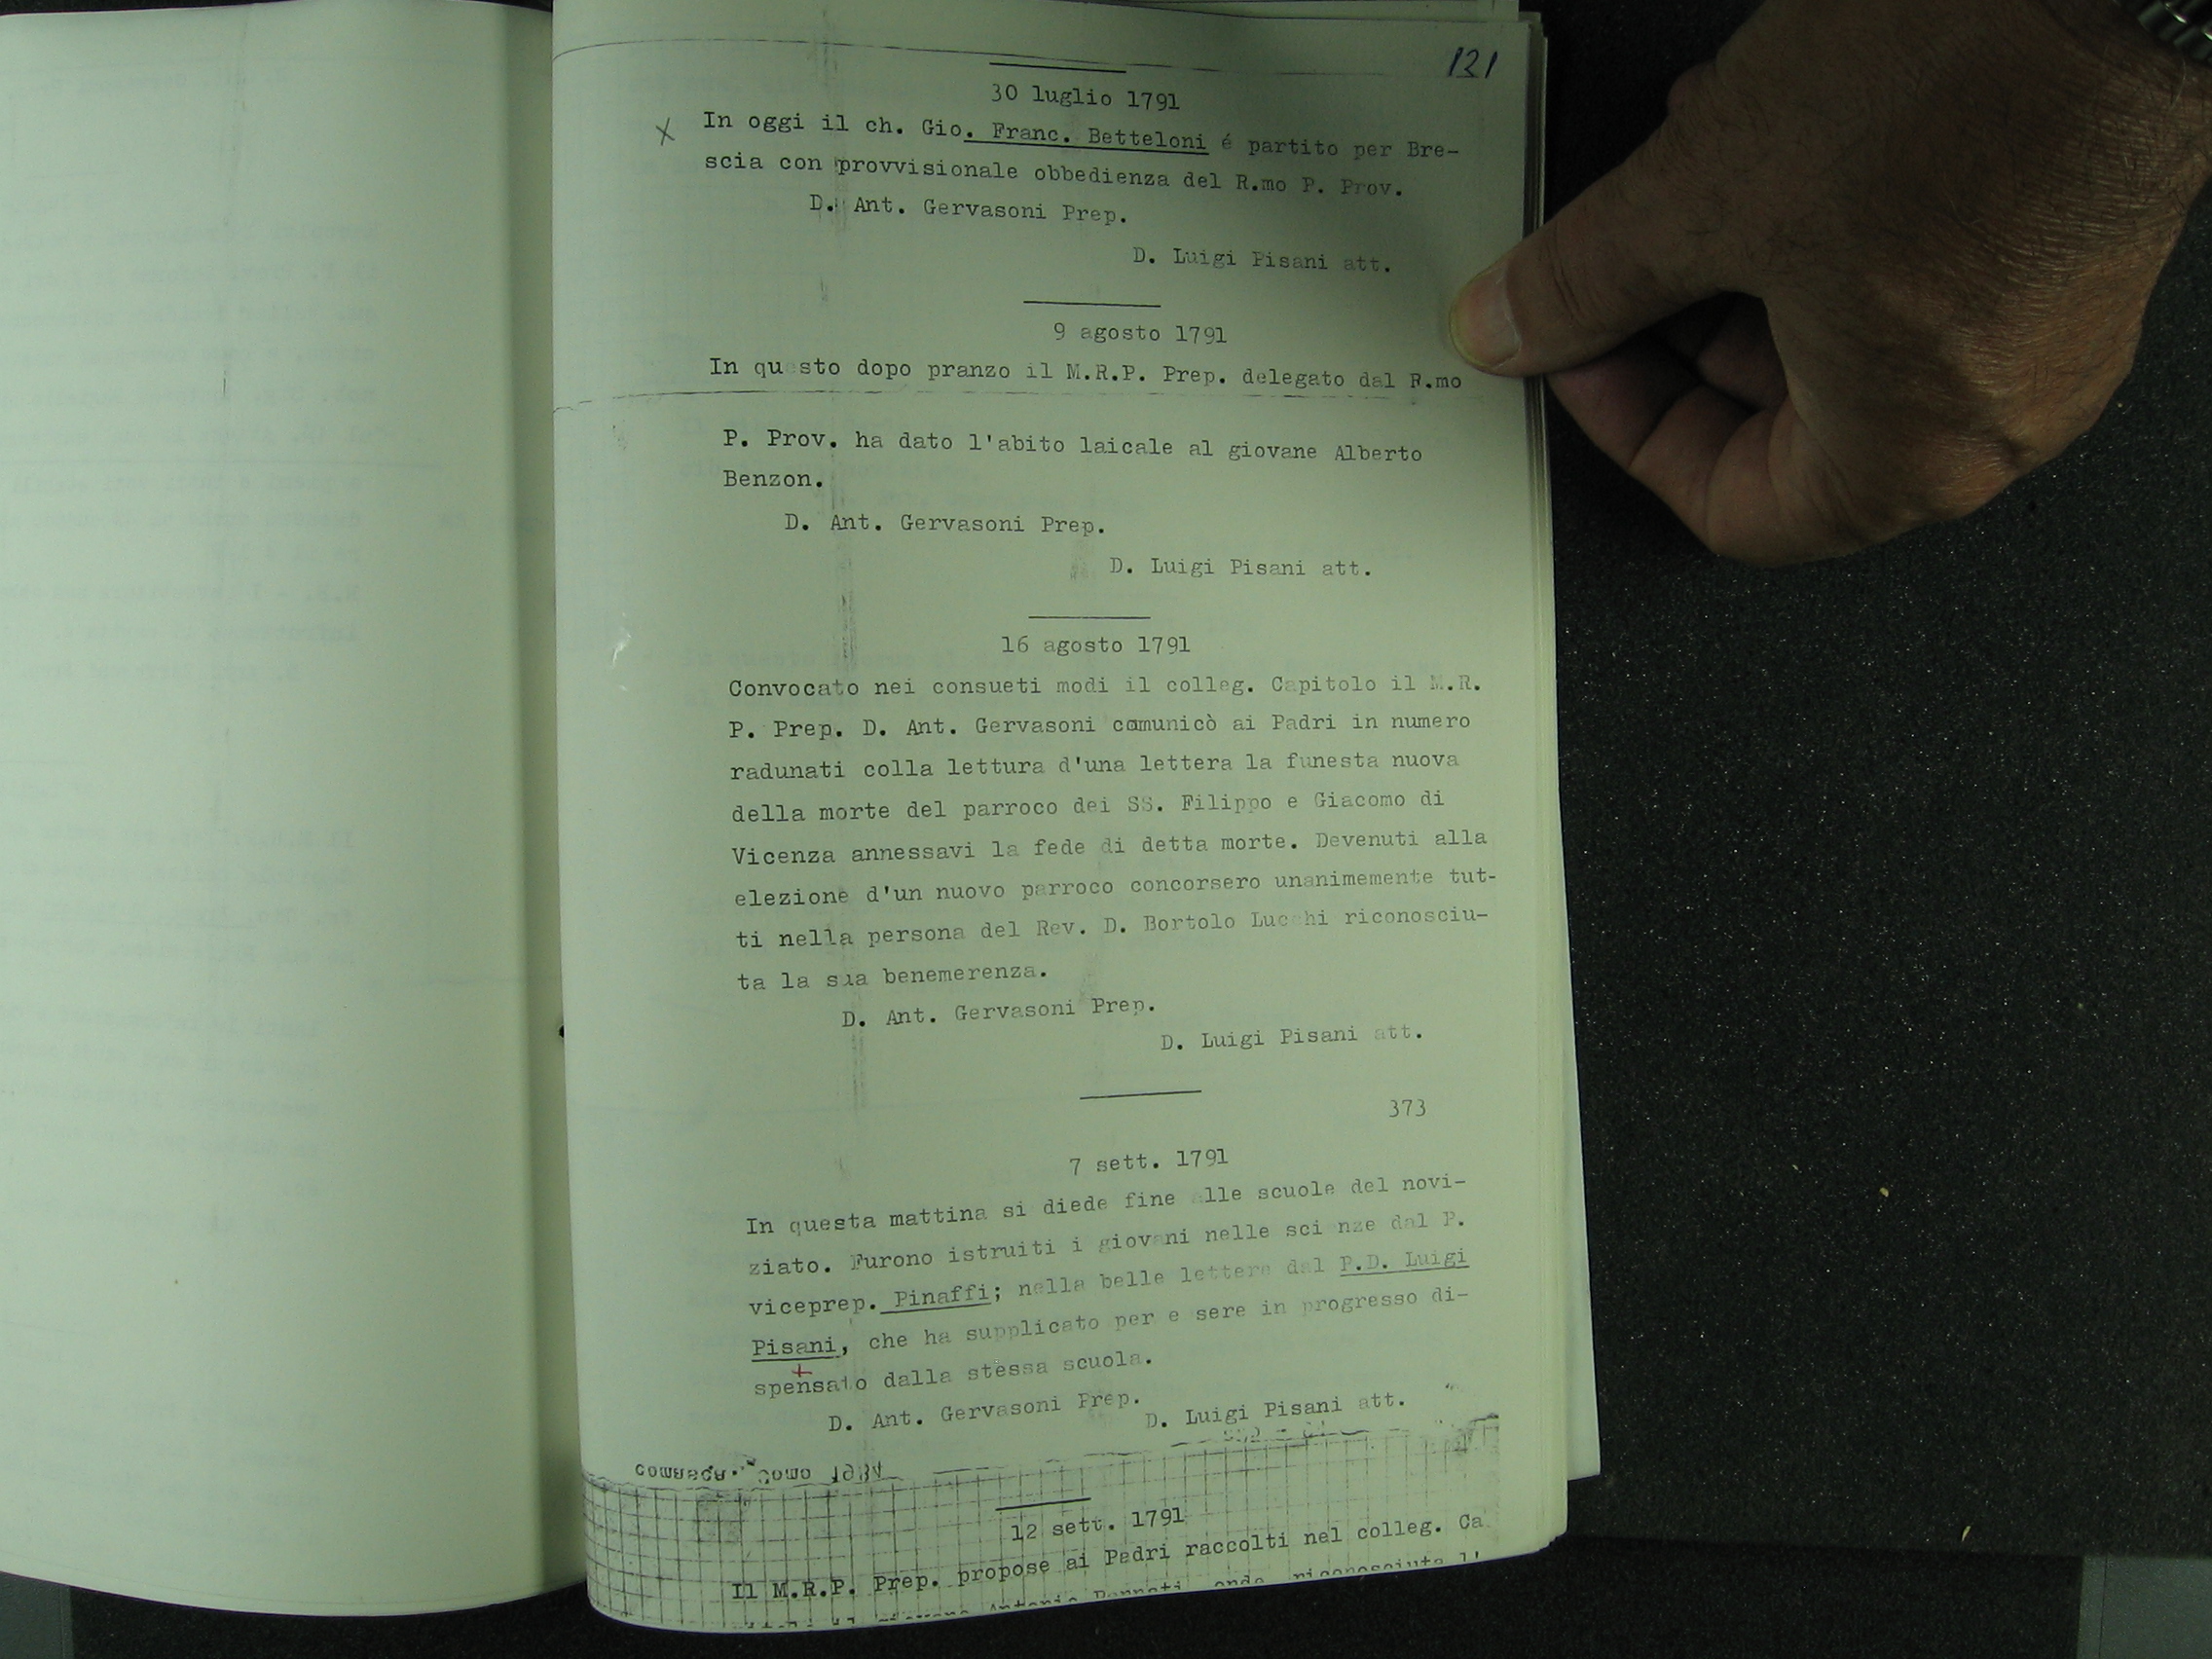 121
30 luglio 1791
In oggi il ch. Gio. Franc. Betteloni é partito per Bre-
scia con provvisionale obbedienza del R.mo P. Prov.
D. Ant. Gervasoni Prep.
D. Luigi Pisani att.
9 agosto 1791
In questo dopo pranzo il M.R.P. Prep. delegato dal R.mo
P. Prov. ha dato l'abito laicale al giovane Alberto
Benzon.
D. Ant. Gervasoni Prep.
D. Luigi Pisani att.
16 agosto 1791
Convocato nei consueti modi il colleg. Capitolo il M.R.
P. Prep. D. Ant. Gervasoni comunicò ai Padri in numero
radunati colla lettura d'una lettera la funesta nuova
della morte del parroco dei SS. Filippo e Giacomo di
Vicenza annessavi la fede di detta morte. Devenuti alla
elezione d'un nuovo parroco concorsero unanimemente tut-
ti nella persona del Rev. D. Bortolo Lucchi riconosciu-
ta la sua benemerenza.
D. Ant. Gervasoni Prep.
D. Luigi Pisani att.
373
7 sett. 1791
In questa mattina si diede fine alle scuole del novi-
ziato. Furono istruiti i giovani nelle scienze dal P.
viceprep. Pinaffi; nella belle lettere dal P.D. Luigi
Pisani, che ha supplicato per essere in progresso di-
spensato dalla stessa scuola.
D. Ant. Gervasoni Prep.
D. Luigi Pisani att.
comasca. Como 1984
12 sett. 1791
Il M.R.P. Prep. propose ai Padri raccolti nel colleg. Ca
Antonio onde riconosciuta l'